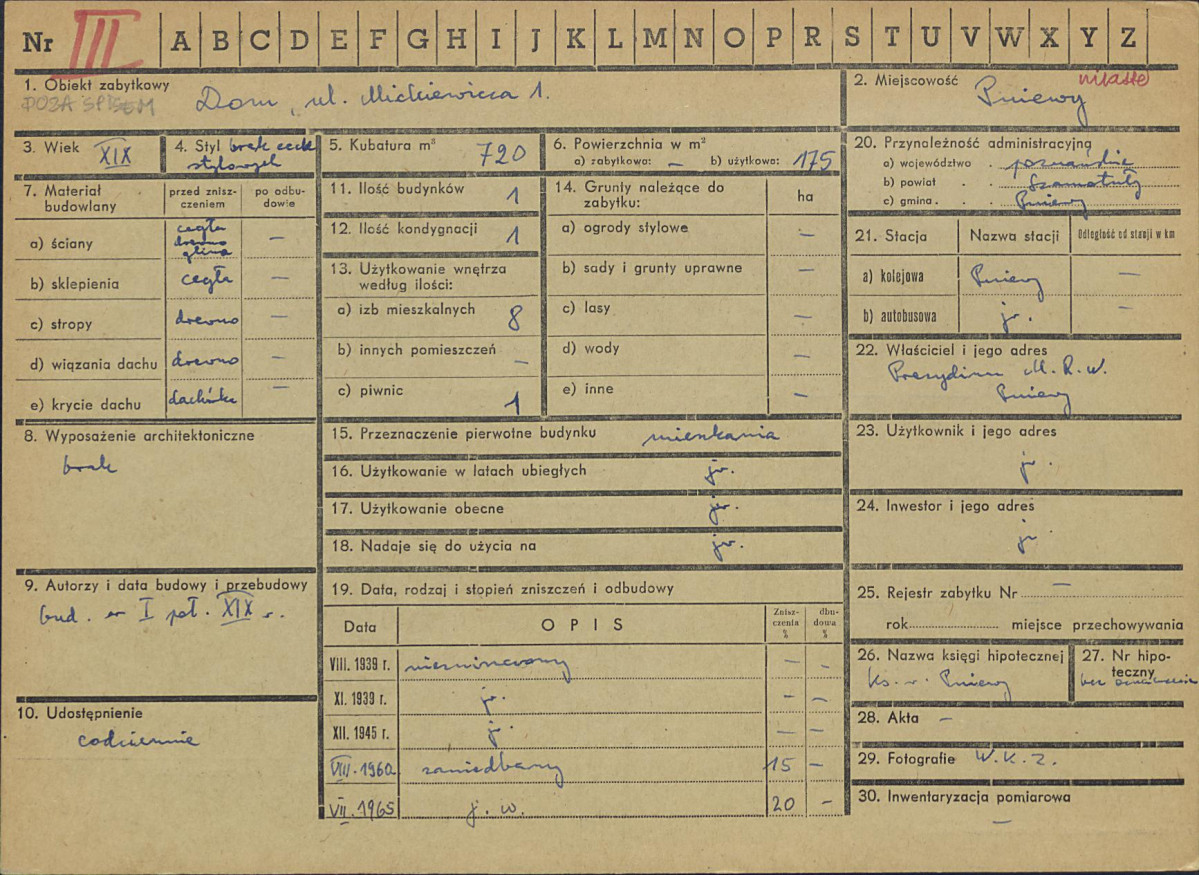 Nr III A B C D E F G H I J K L M N O P R S T U V W X Y Z
1. Obiekt zabytkowy
POZA SPISEM
Dom, ul. Mickiewicza 1.
2. Miejscowość
miasto
Pniewy
3. Wiek XIX
4. Styl brak cech
stylowych
5. Kubatura m³ 720
6. Powierzchnia w m²
a) zabytkowa: — b) użytkowa: 175
7. Materiał budowlany
przed zniszczeniem
po odbudowie
a) ściany cegła drewno glina —
b) sklepienia cegła —
c) stropy drewno —
d) wiązania dachu drewno —
e) krycie dachu dachówka —
8. Wyposażenie architektoniczne
brak
9. Autorzy i data budowy i przebudowy
bud. w I poł. XIX w.
10. Udostępnienie
codziennie
11. Ilość budynków 1
12. Ilość kondygnacji 1
13. Użytkowanie wnętrza
według ilości:
a) izb mieszkalnych 8
b) innych pomieszczeń —
c) piwnic 1
14. Grunty należące do
zabytku:
ha
a) ogrody stylowe —
b) sady i grunty uprawne —
c) lasy —
d) wody —
e) inne —
15. Przeznaczenie pierwotne budynku mieszkania
16. Użytkowanie w latach ubiegłych jw.
17. Użytkowanie obecne jw.
18. Nadaje się do użycia na jw.
19. Data, rodzaj i stopień zniszczeń i odbudowy
Data OPIS Zniszczenia % dbudowa %
VIII. 1939 r. — —
XI. 1939 r. jw. — —
XII. 1945 r. jw. — —
VIII. 1960 zaniedbany 15 —
VII. 1965 j. w. 20 —
20. Przynależność administracyjna
a) województwo . poznańskie
b) powiat . . Szamotuły
c) gmina . . Pniewy
21. Stacja Nazwa stacji Odległość od stacji w km
a) kolejowa Pniewy —
b) autobusowa jw. —
22. Właściciel i jego adres
Prezydium M. R. N.
Pniewy
23. Użytkownik i jego adres
jw.
24. Inwestor i jego adres
jw
25. Rejestr zabytku Nr —
rok miejsce przechowywania
26. Nazwa księgi hipotecznej
ks. w. Pniewy
27. Nr hipoteczny
bez
28. Akta —
29. Fotografie W.K.Z.
30. Inwentaryzacja pomiarowa
—